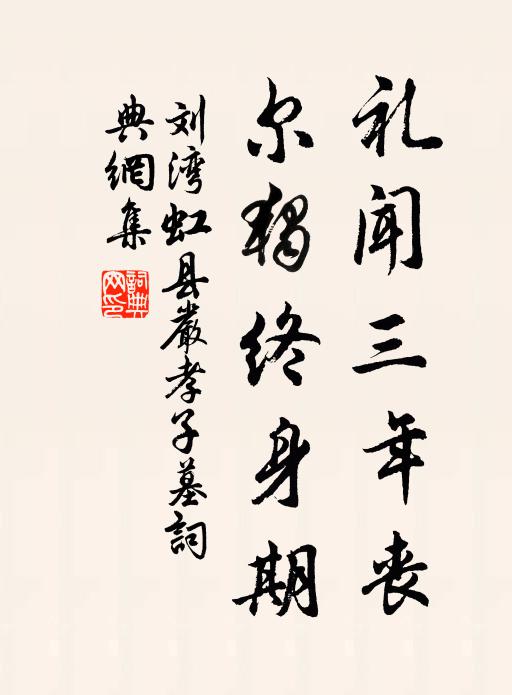 礼闻三年丧
尔独终身期
刘湾虹县嚴孝子墓詞
典網集
詞典网印